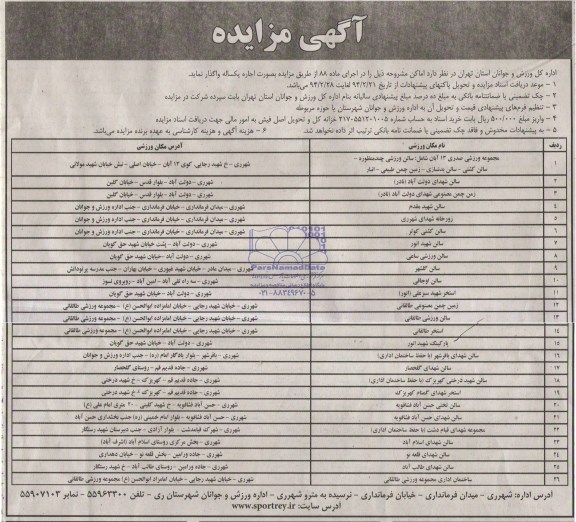 آگهی مزایده
اداره کل ورزش و جوانان استان تهران در نظر دارد اماکن مشروحه ذیل را در اجرای ماده ۸۸ از طریق مزایده بصورت اجاره یکساله واگذار نماید.
۱ - موعد دریافت اسناد مزایده و تحویل پاکتهای پیشنهادات از تاریخ ۹۴/۲/۲۱ لغایت ۹۴/۲/۲۸ می‌باشد.
۲ - چک تضمینی یا ضمانتنامه بانکی به مبلغ ده درصد مبلغ پیشنهادی سالیانه بنام اداره کل ورزش و جوانان استان تهران بابت سپرده شرکت در مزایده
۳ - تنظیم فرم‌های پیشنهادی قیمت و تحویل آن به اداره ورزش و جوانان شهرستان یا حوزه مربوطه
۴ - واریز مبلغ ۵۰۰/۰۰۰ ریال بابت خرید اسناد به حساب خزانه کل و تحویل اصل فیش به امور مالی جهت دریافت اسناد مزایده
۵ - به پیشنهادات مخدوش و فاقد چک تضمینی یا ضمانت نامه بانکی ترتیب اثر داده نخواهد شد. ۶ - هزینه آگهی و هزینه کارشناسی به عهده برنده مزایده می‌باشد.
ردیف نام مکان ورزشی آدرس مکان ورزشی
۱ مجموعه ورزشی صدری ۱۳ آبان شامل: سالن ورزشی چندمنظوره - سالن کشتی - سالن بدنسازی - زمین چمن طبیعی - انبار شهرری - خ شهید رجایی، کوی ۱۳ آبان - خیابان اصلی - نبش خیابان شهید مولائی
۲ سالن شهدای دولت آباد (نادر) شهرری - دولت آباد - بلوار قدس - خیابان گلین
۳ زمین چمن مصنوعی شهدای دولت آباد (نادر) شهرری - دولت آباد - بلوار قدس - خیابان گلین
۴ سالن شهید مقدم شهرری - میدان فرمانداری - خیابان فرمانداری - جنب اداره ورزش و جوانان
۵ زورخانه شهدای شهرری شهرری - میدان فرمانداری - خیابان فرمانداری - جنب اداره ورزش و جوانان
۶ سالن کشتی کوثر شهرری - میدان فرمانداری - خیابان فرمانداری - جنب اداره ورزش و جوانان
۷ سالن شهید انور شهرری - دولت آباد - پشت خیابان شهید حق گویان
۸ سالن ورزشی ساعی شهرری - دولت آباد - خیابان شهید حق گویان
۹ سالن گلشهر شهرری - میدان مادر - خیابان شهید غیوری - خیابان بهاران - جنب مدرسه
۱۰ سالن اوجاقی شهرری - سه راه تقی آباد - امین آباد - روبروی نسوز
۱۱ استخر شهید میرعلی (انور) شهرری - دولت آباد - خیابان شهید حق گویان
۱۲ زمین چمن مصنوعی طالقانی شهرری - خیابان شهید رجایی - خیابان امامزاده ابوالحسن (ع) - مجموعه ورزشی طالقانی
۱۳ سالن ورزشی طالقانی شهرری - خیابان شهید رجایی - خیابان امامزاده ابوالحسن (ع) - مجموعه ورزشی طالقانی
۱۴ استخر طالقانی شهرری - خیابان شهید رجایی - خیابان امامزاده ابوالحسن (ع) - مجموعه ورزشی طالقانی
۱۵ پارکینگ شهید انور شهرری - دولت آباد - خیابان شهید حق گویان
۱۶ سالن شهدای باقرشهر (با حفظ ساختمان اداری) شهرری - باقرشهر - بلوار یادگار امام (ره) - جنب اداره ورزش و جوانان
۱۷ سالن شهدای گلحصار شهرری - جاده قدیم قم - روستای گلحصار
۱۸ سالن شهید درختی کهریزک (با حفظ ساختمان اداری) شهرری - جاده قدیم قم - کهریزک - خ شهید درختی
۱۹ استخر شهدای گمنام کهریزک شهرری - جاده قدیم قم - کهریزک - خ شهید درختی
۲۰ سالن تختی حسن آباد فشافویه شهرری - حسن آباد فشافویه - خ شهید کلینی - ۲۰ متری امام علی (ع)
۲۱ سالن شهدای حسن آباد فشافویه شهرری - حسن آباد فشافویه - بلوار امام خمینی (ره) جنب بخشداری حسن آباد
۲۲ مجموعه شهدای قیام دشت (با حفظ ساختمان اداری) شهرری - شهرک قیامدشت - بلوار آزادی - جنب دبیرستان شهید رستگار
۲۳ سالن شهدای اسلام آباد شهرری - بخش مرکزی روستای اسلام آباد (اشرف آباد)
۲۴ سالن شهدای قلعه نو شهرری - جاده ورامین - بخش قلعه نو - خیابان شهداری
۲۵ سالن شهدای طالب آباد شهرری - جاده ورامین - روستای طالب آباد - خ شهید رستگار
۲۶ ساختمان اداری مجموعه ورزشی طالقانی شهرری - خیابان شهید رجایی - خیابان امامزاده ابوالحسن (ع) - مجموعه ورزشی طالقانی
ParsNamadData
۰۲۱-۸۸۳۴۹۶۷۰-۵
آدرس اداره: شهرری - میدان فرمانداری - خیابان فرمانداری - نرسیده به مترو شهرری - اداره ورزش و جوانان شهرستان ری - تلفن ۵۵۹۶۳۳۰۰ - نمابر ۵۵۹۰۷۱۰۳
آدرس سایت: www.sportrey.ir